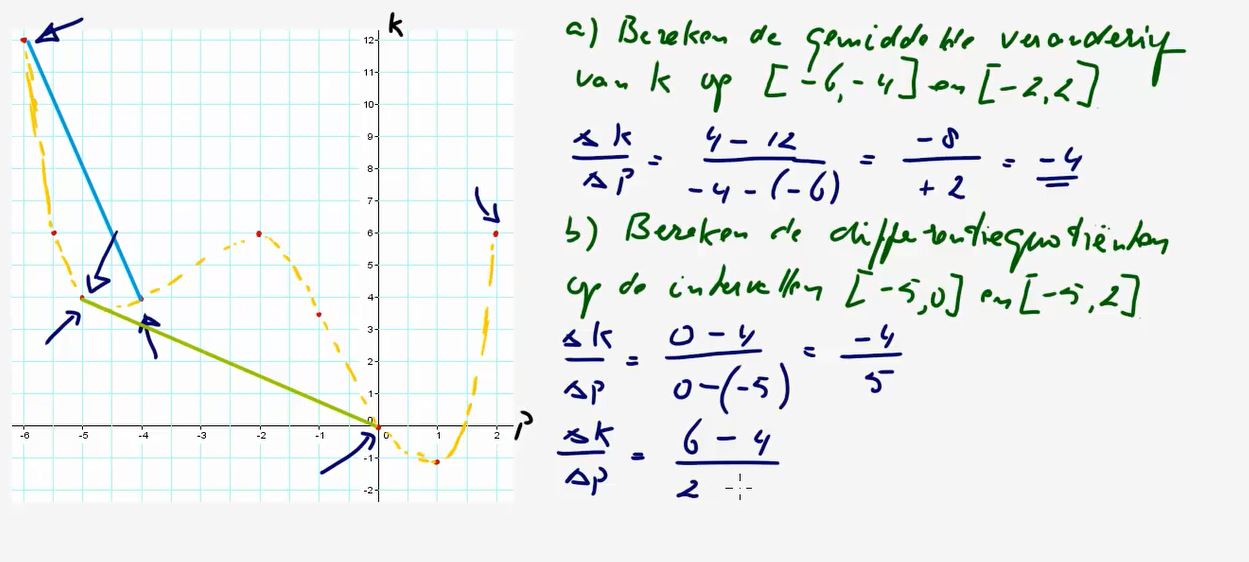 k
12
11
10
9
8
7
6
5
4
3
2
1
0
-6 -5 -4 -3 -2 -1 0 1 2 P
-1
-2
a) Bereken de gemiddelde verandering
van k op [-6,-4] en [-2,2]
Δk/ΔP = (4 - 12)/(-4 - (-6)) = -8/+2 = -4
b) Bereken de differentiequotiënten
op de intervallen [-5,0] en [-5,2]
Δk/ΔP = (0 - 4)/(0 - (-5)) = -4/5
Δk/ΔP = (6 - 4)/2